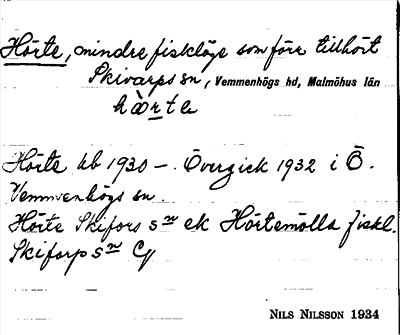 Hörte, mindre fiskläge som förr tillhört
Skivarps sn, Vemmenhögs hd, Malmöhus län
hö̀rta
Hörte kb 1930 –. Övergick 1932 i Ö.
Vemmenhögs sn.
Hörte Skifors sn ek Hörtemölla fiskl.
Skifarp sn Cg
NILS NILSSON 1934